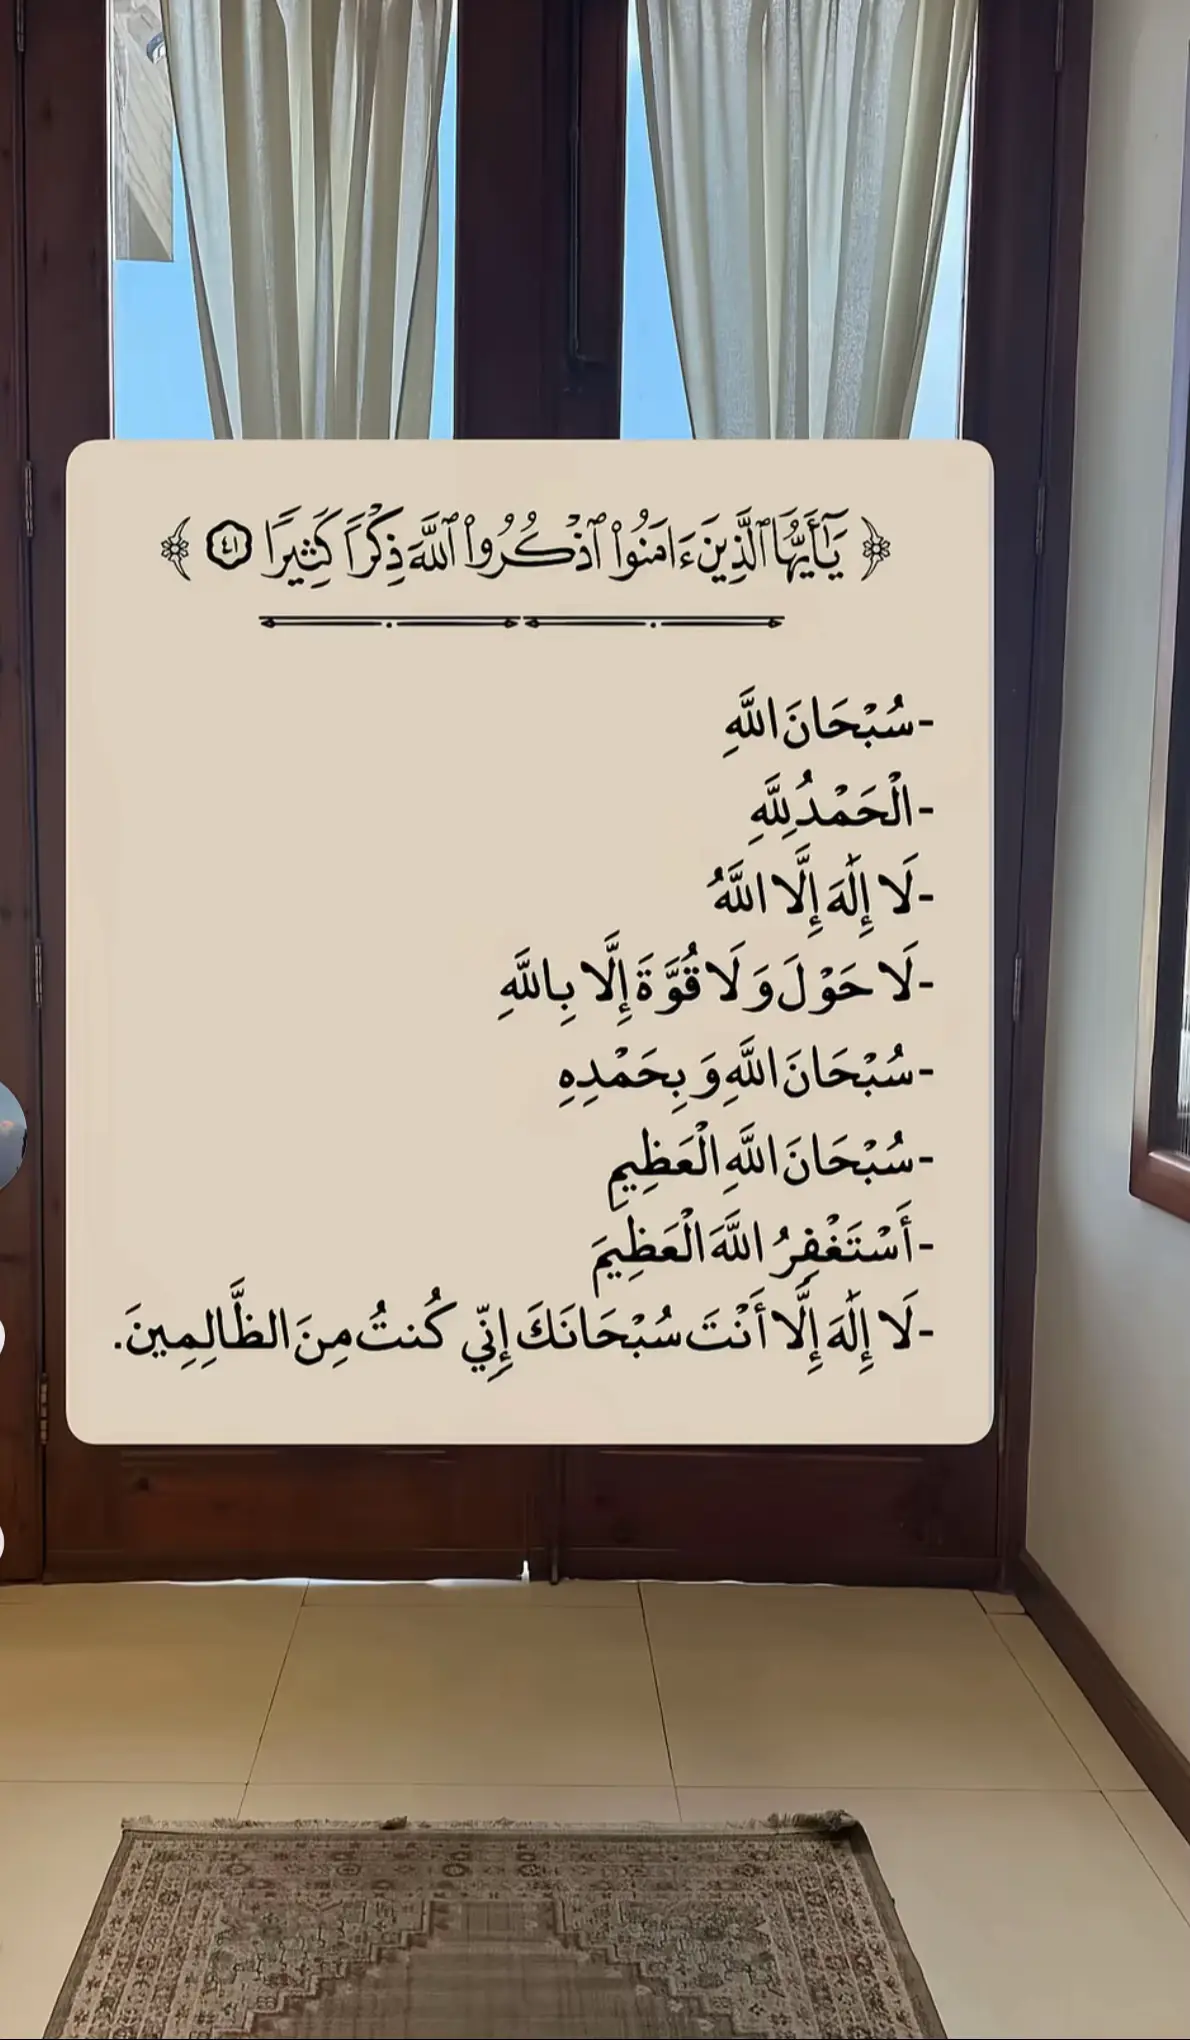 ﴿ يَٰٓأَيُّهَا ٱلَّذِينَ ءَامَنُوا۟ ٱذْكُرُوا۟ ٱللَّهَ ذِكْرًا كَثِيرًا ٤١ ﴾
-سُبْحَانَ اللَّهِ
-الْحَمْدُ لِلَّهِ
-لَا إِلَٰهَ إِلَّا اللَّهُ
-لَا حَوْلَ وَلَا قُوَّةَ إِلَّا بِاللَّهِ
-سُبْحَانَ اللَّهِ وَ بِحَمْدِهِ
-سُبْحَانَ اللَّهِ الْعَظِيمِ
-أَسْتَغْفِرُ اللَّهَ الْعَظِيمَ
-لَا إِلَٰهَ إِلَّا أَنْتَ سُبْحَانَكَ إِنِّي كُنتُ مِنَ الظَّالِمِينَ.